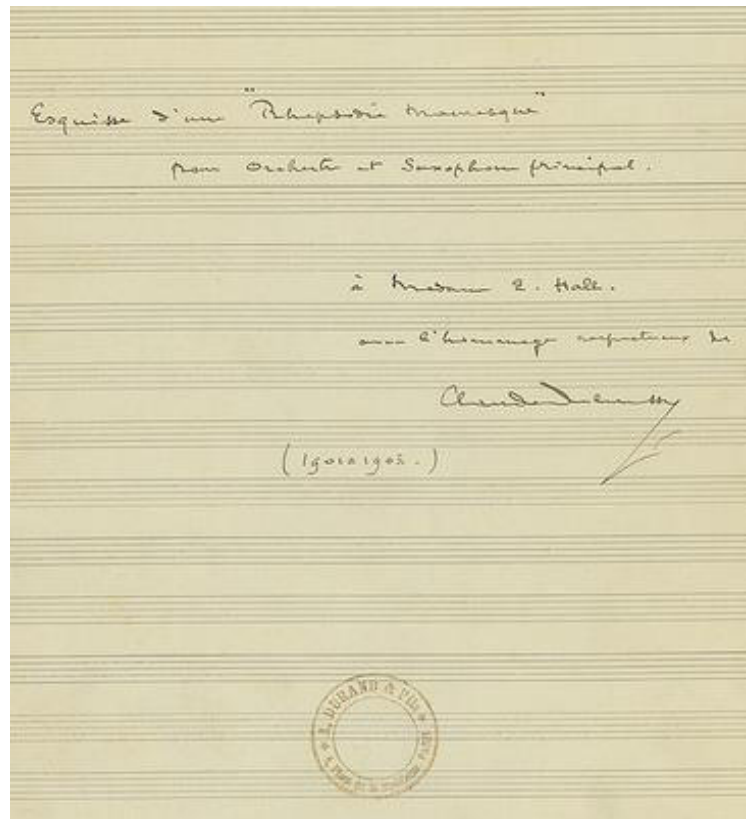 Esquisse d'une "Rhapsodie Mauresque"
pour Orchestre et Saxophone principal.
à Madame E. Hall.
avec l'hommage respectueux de
Claude Debussy
(1901 1908.)
A. DURAND & Fils
4, Place de la Madeleine PARIS